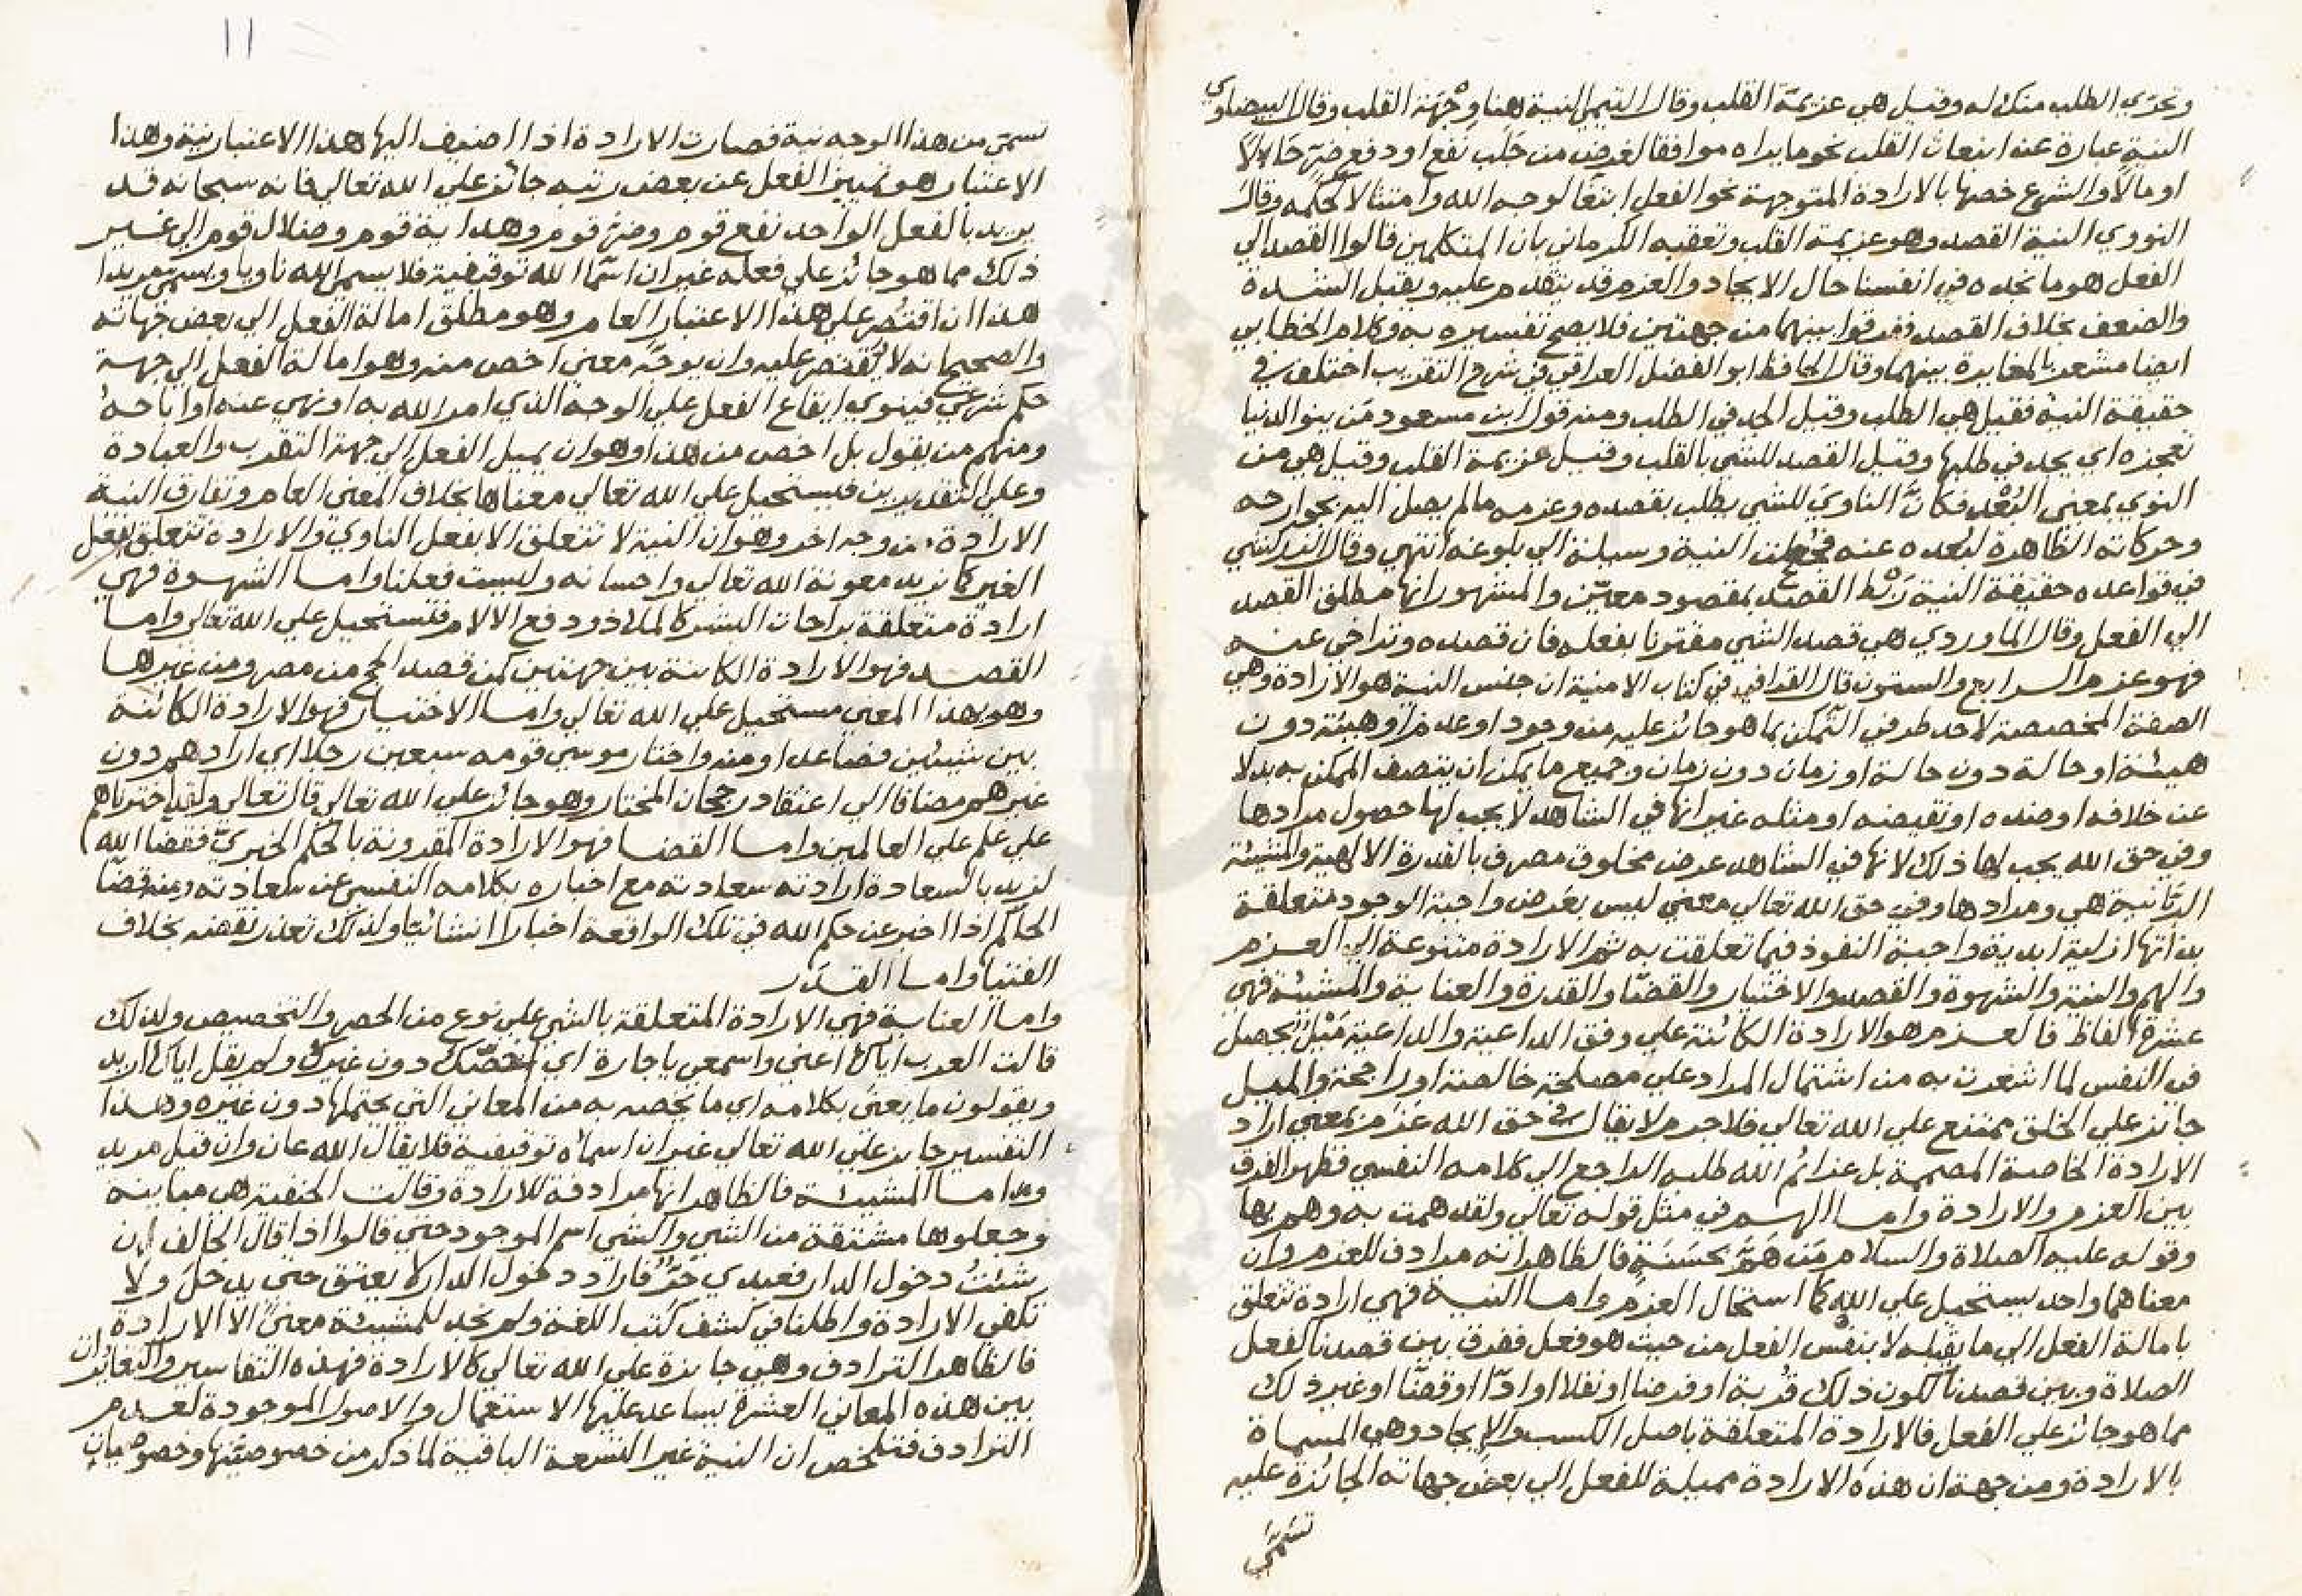 وتحري الطلب منك له وقيل هي عزيمة القلب وقال التيمي النية هنا وجهة القلب وقال البيضاوي
النية عبارة عن انبعاث القلب نحو ما يراه موافقا لغرض من جلب نفع او دفع ضر حالا
او مالا والشرع خصها بالارادة المتوجهة نحو الفعل ابتغا لوجه الله وامتثالا لحكمه وقال
النووي النية القصد وهو عزيمة القلب وتعقبه الكرماني بان المتكلمين قالوا القصد الي
الفعل هو ما نجده في انفسنا حال الايجاد والعزم قد يتقدم عليه ويقبل الشدة
والضعف بخلاف القصد ففرقوا بينهما من جهتين فلا يصح تفسيره به وكلام الخطابي
ايضا مشعر بالمغايرة بينهما وقال الحافظ ابو الفضل العراقي في شرح التقريب اختلف في
حقيقة النية فقيل هي الطلب وقيل الجد في الطلب ومنه قول ابن مسعود من ينو الدنيا
تعجزه اي يجد في طلبها وقيل القصد للشي بالقلب وقيل عزيمة القلب وقيل هي من
النوي بمعني البُعْد فكانَّ الناويَ للشي يطلب بقصده وعزمه مالم يصل اليه بجوارحه
وحركاته الظاهرة لبُعده عنه فجعلت النية وسيلة الي بلوغه انتهي وقال الزركشي
في قواعده حقيقة النية رَبْط القصد بمقصود معيّن والمشهور انها مطلق القصد
الي الفعل وقال الماوردي هي قصد الشي مقترنا بفعله فان قصده وتراخي عنه
فهو عزم السابع والستون قال القرافي في كتاب الامنية ان جنس النية هو الارادة وهي
الصفة المخصصة لاحد طرفي الممكن بما هو جائز عليه من وجود او عدم او هيئة دون
هيئة او حالة دون حالة او زمان دون زمان وجميع ما يمكن ان يتصف الممكن به بدلا
عن خلافه او ضده او نقيضه او مثله غير انها في الشاهد لا يجب لها حصول مرادها
وفي حق الله يجب لها ذلك لانها في الشاهد عرض مخلوق مصرف بالقدرة الالهية والمشيئة
الربّانية هي ومرادها وفي حق الله تعالي معني ليس بعَرض واجبة الوجود متعلقة
بذاتها ازلية ابدية واجبة النفوذ فيما تعلقت به ثم الارادة متنوعة الي العزم
والهم والنية والشهوة والقصد والاختيار والقضا والقدرة والعناية والمشيئة فهي
عشرة الفاظ فالعزم هو الارادة الكائنة علي وفق الداعية والداعية مَيْل يحصل
في النفس لما اشعرت به من اشتمال المراد علي مصلحة خالصة او راجحة والميل
جائز علي الخلق ممتنع علي الله تعالي فلا جرم لا يقال في حق الله عَزَمَ بمعني اراد
الارادة الخاصة المصممة بل عزائم الله طلبه الراجع الي كلامه النفسي فظهر الفرق
بين العزم والارادة واما الهم في مثل قوله تعالي ولقد همت به وهم بها
وقوله عليه الصلاة والسلام مَن هَمَّ بحسَنَةٍ فالظاهر انه مرادف للعزم وان
معناهما واحد يستحيل علي الله كما استحال العزم واما النية فهي ارادة تتعلق
بامالة الفعل الي ما يقبله لا بنفس الفعل من حيث هو فعل ففرق بين قصدنا لفعل
الصلاة وبين قصدنا لكون ذلك قُربة او فرضا او نفلا او ادّا او قضّا او غير ذلك
مما هو جائز علي الفعل فالارادة المتعلقة باصل الكسب والايجاد وهي المسماة
بالارادة ومن جهة ان هذه الارادة مميلة للفعل الي بعض جهاته الجائزة عليه
تسمي
١١
تسمّى من هذا الوجه نية فصارت الارادة اذا اضيف اليها هذا الاعتبار نية وهذا
الاعتبار هو تمييز الفعل عن بعض رتبه جائز علي الله تعالي فانه سبحانه قد
يريد بالفعل الواحد نفع قوم وضرّ قوم وهداية قوم وضلال قوم الي غير
ذلك مما هو جائز علي فعله غير ان اسما الله توقيفية فلا يسمي الله ناويا ويسمي مريدا
هذا ان اقتُصِر علي هذا الاعتبار العام وهو مطلق امالة الفعل الي بعض جهاته
والصحيح انه لا يُقتصر عليه وان يوجَّه معني اخص منه وهو امالة الفعل الي جهة
حكم شرعي فينوي ايقاع الفعل علي الوجه الذي امر الله به او نهي عنه او اباحهُ
ومنهم من يقول بل اخص من هذا وهو ان يميل الفعل الي جهة التقرب والعبادة
وعلي التقديرين فيستحيل علي الله تعالي معناها بخلاف المعني العام وتفارق النية
الارادة من وجه اخر وهو ان النية لا تتعلق الا بفعل الناوي والارادة تتعلق بفعل
الغير كما نريد معونة الله تعالي واحسانه وليست فعلنا واما الشهوة فهي
ارادة متعلقة براحات البشر كالملاذ ودفع الالام فتستحيل علي الله تعالي واما
القصد فهو الارادة الكائنة بين جهتين كمن قصد الحج من مصر ومن غيرها
وهو بهذا المعني مستحيل علي الله تعالي واما الاختيار فهو الارادة الكائنة
بين شيئين فصاعدا ومنه واختار موسي قومه سبعين رجلا اي ارادهم دون
غيرهم مضافا الي اعتقاد رجحان المختار وهو جائز علي الله تعالي قال تعالي ولقد اخترناهم
علي علم علي العالمين واما القضا فهو الارادة المقرونة بالحكم الخبري فقضا الله
لزيد بالسعادة ارادته سعادته مع اخباره بكلامه النفسي عن سعادته ومنه قضا
الحاكم اذا اخبر عن حكم الله في تلك الواقعة اخبارا انشائيا ولذلك تعذر نقضه بخلاف
الفتيا واما القدَر
واما العناية فهي الارادة المتعلقة بالشي علي نوع من الحصر والتخصيص ولذلك
قالت العرب اياكِ اعني واسمعي يا جارة اي اخصّك دون غيرك ولم يقل اياك اريد
ويقولون ما يعني بكلامه اي ما يخصه به من المعاني التي يحتملها دون غيره وهذا
التفسير جايز علي الله تعالي غير ان اسماه توقيفية فلا يقال الله عان وان قيل مريد
واما المشيئة فالظاهر انها مرادفة للارادة وقالت الحنفية هي مباينة
وجعلوها مشتقة من الشي والشي اسم الموجود حتي قالوا اذا قال الحالف ان
شئتُ دخول الدار فعبدي حرٌّ فاراد دخول الدار لا يعتق حتي يدخل ولا
تكفي الارادة واطلنا في كشف كتب اللغة ولم نجد للمشيئة معنيً الا الارادة
فالظاهر الترادف وهي جائزة علي الله تعالي كالارادة فهذه التفاسير والتغاير ان
بين هذه المعاني العشرة يساعد عليها الاستعمال والاصول الموجودة لعدم
الترادف فتلخص ان النية غير التسعة الباقية لما ذكر من خصوصيتها وخصوصيات